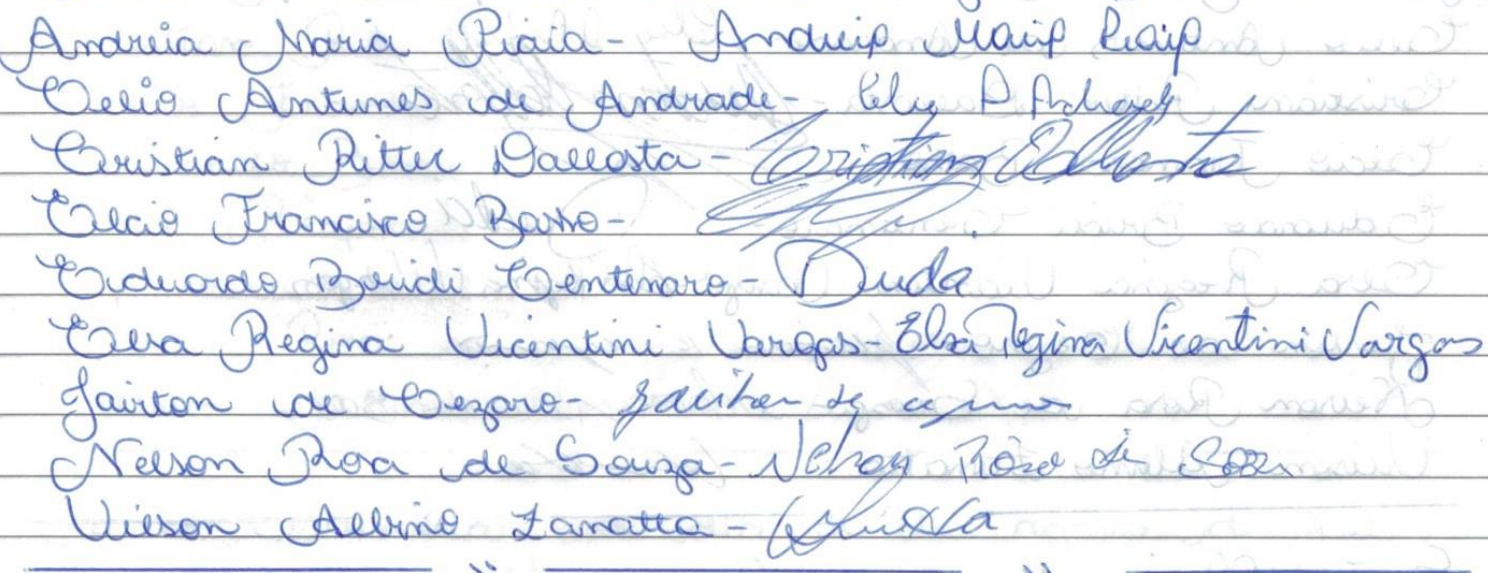 Andreia Maria Piaia - Andreia Maria Piaia
Celio Antunes de Andrade -
Cristian Ritter Dallosta - Cristian Dallosta
Elcio Francisco Basso -
Eduardo Bridi Centenaro - Duda
Elsa Regina Vicentini Vargas - Elsa Regina Vicentini Vargas
Jairton de Cezaro -
Nelson Rosa de Souza - Nelson Rosa de Souza
Vilson Albino Zanatta -